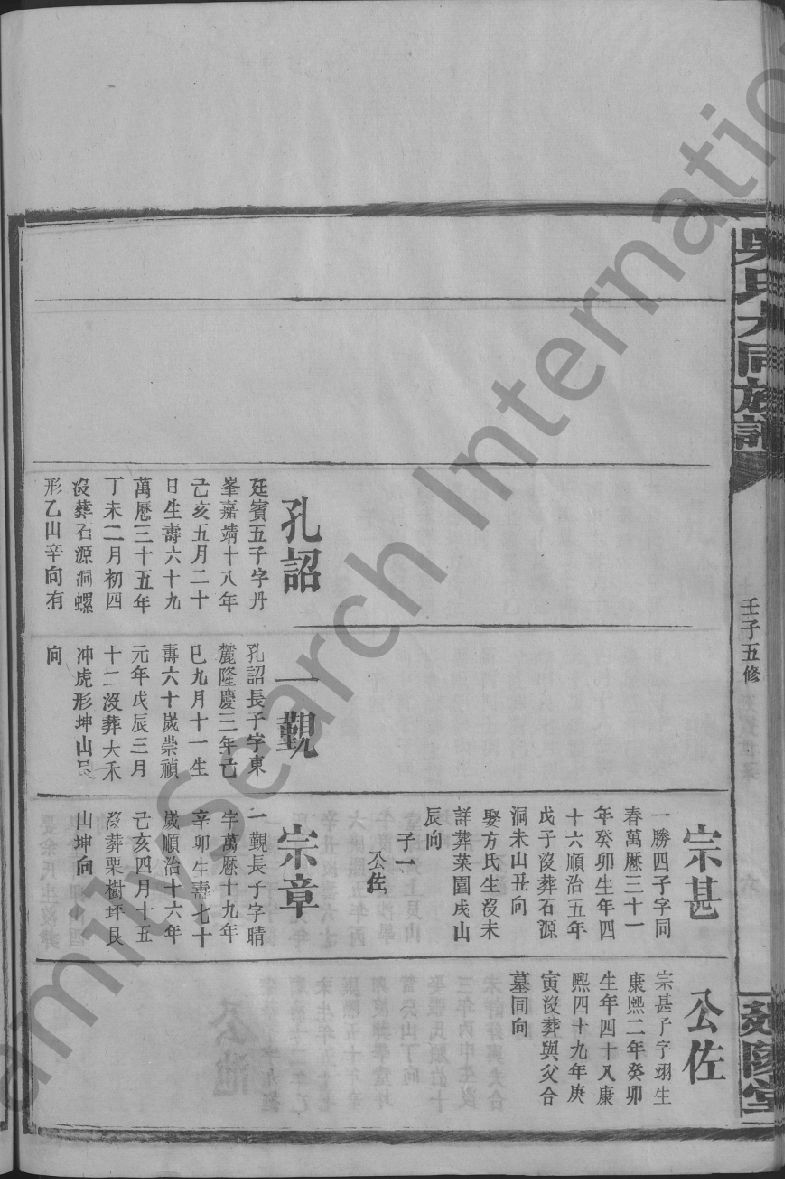 吳氏大同族譜
壬子五修
延陵堂
宗甚
一勝四子字同
春萬厯三十一
年癸卯生年四
十六順治五年
戊子沒葬石源
洞未山丑向
娶方氏生沒未
詳葬菜園戌山
辰向
子一
公佐
公佐
宗甚子字翊生
康熙二年癸卯
生年四十八康
熙四十九年庚
寅沒葬與父合
墓同向
孔詔
廷賓五子字丹
峯嘉靖十八年
己亥五月二十
日生壽六十九
萬厯三十五年
丁未二月初四
沒葬石源洞螺
形乙山辛向有
一觀
孔詔長子字東
麓隆慶三年己
巳九月十一生
壽六十歲崇禎
元年戊辰三月
十二沒葬大禾
冲虎形坤山艮
向
宗章
一觀長子字晴
宇萬厯十九年
辛卯生壽七十
歲順治十六年
己亥四月十五
沒葬栗樹坪艮
山坤向
FamilySearch International